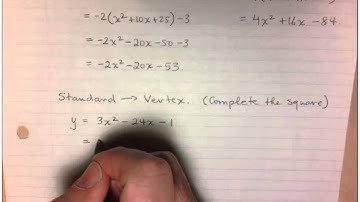 = -2(x²+10x+25)-3
= 4x²+16x-84.
= -2x²-20x-50-3
= -2x²-20x-53.
Standard → Vertex. (Complete the square)
y = 3x²-24x-1
=